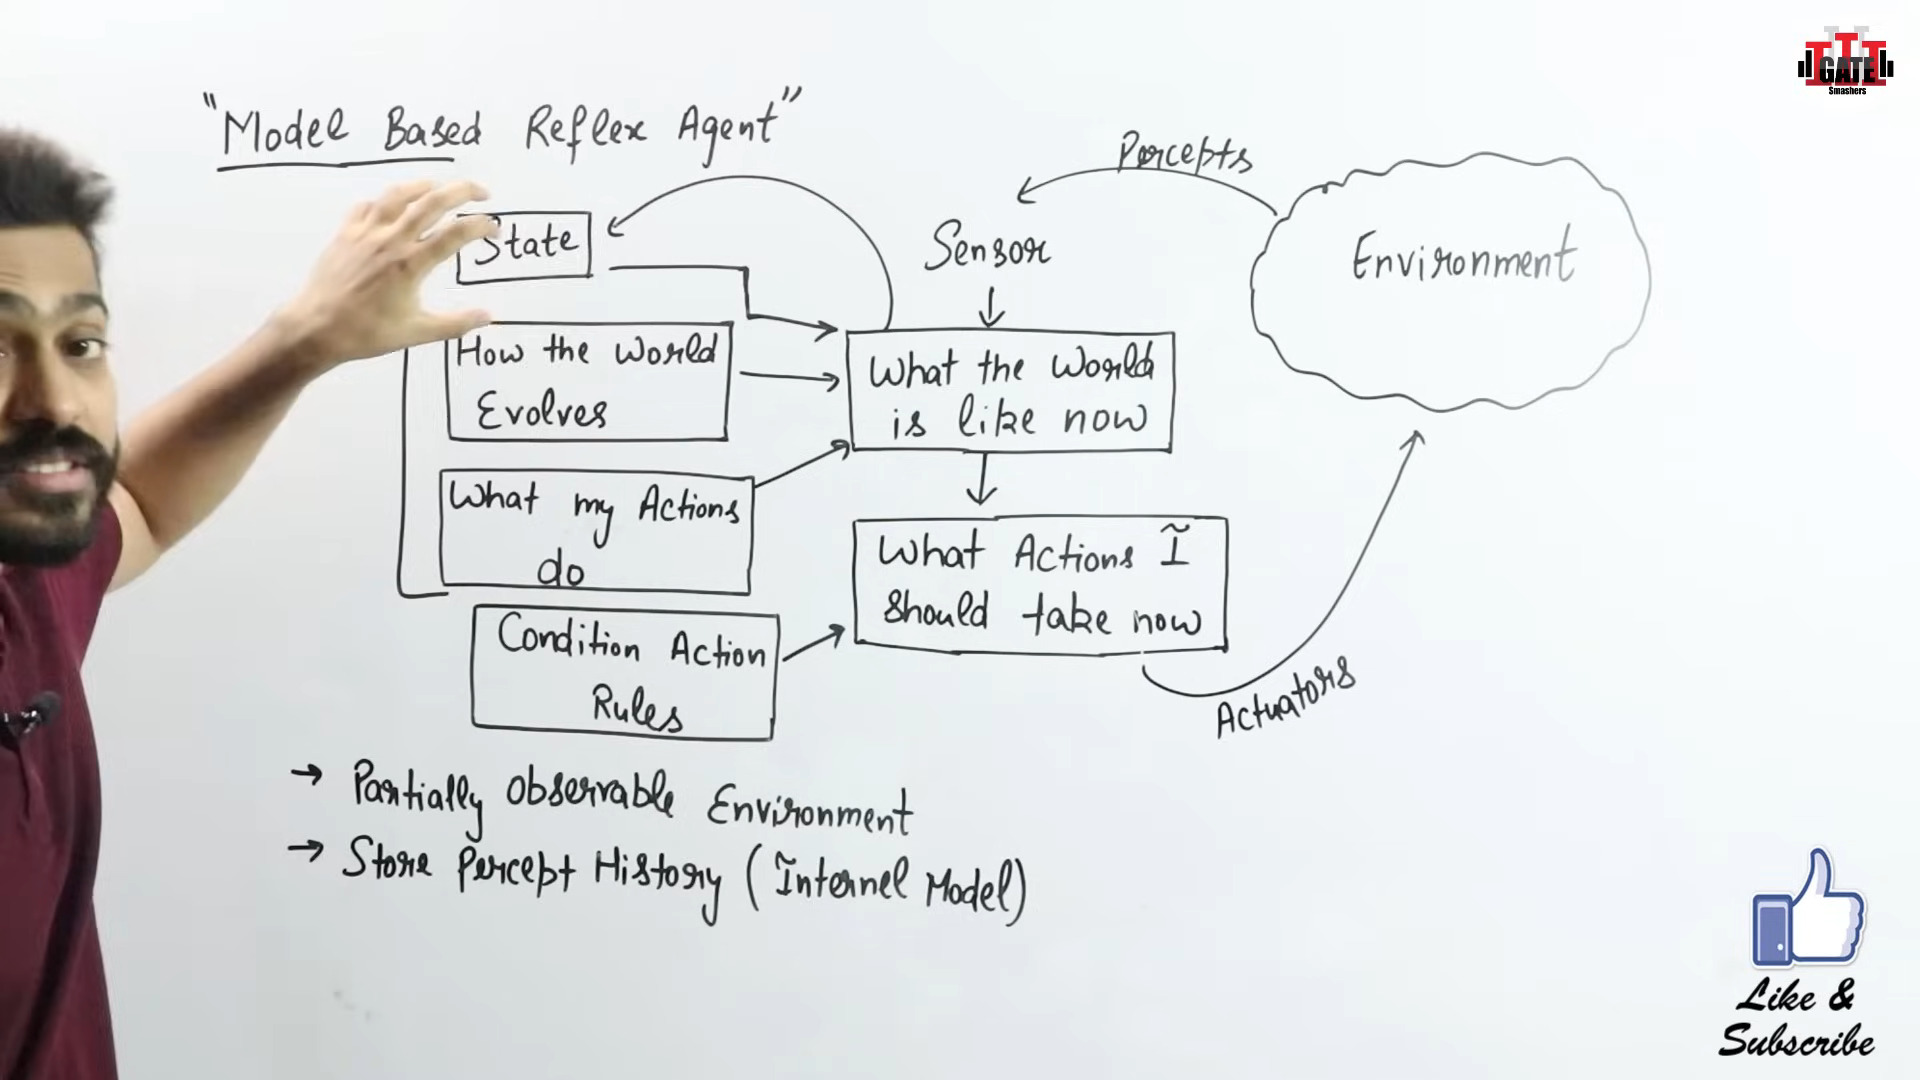 "Model Based Reflex Agent"
State
How the World
Evolves
What my Actions
do
Condition Action
Rules
Percepts
Sensor
What the World
is like now
What Actions I
should take now
Environment
Actuators
→ Partially Observable Environment
→ Store Percept History (Internel Model)
GATE
Smashers
Like &
Subscribe